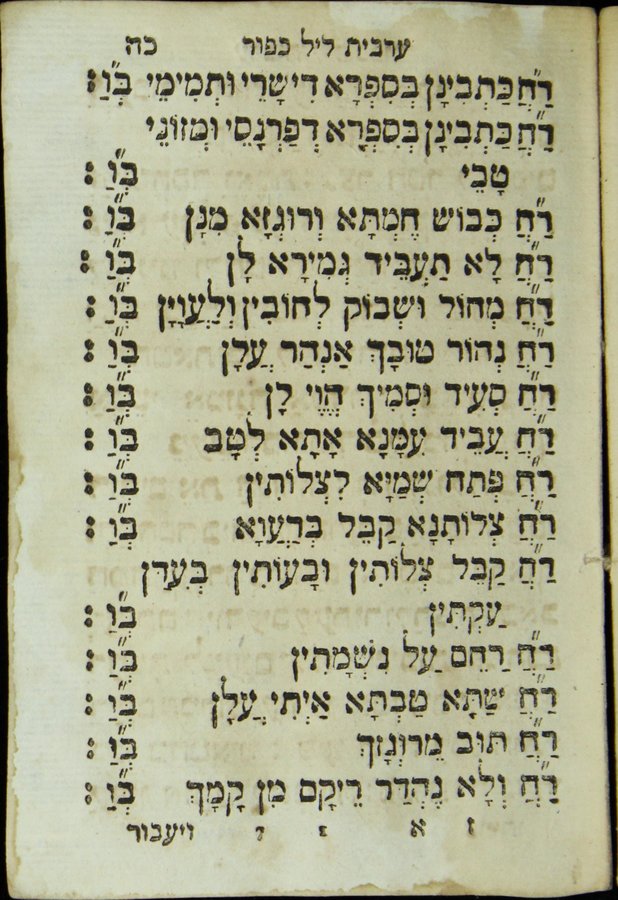 ערבית ליל כפור כה
רַ״חֲ כַּתְבִינָן בְּסִפְרָא דִישָׁרֵי וּתְמִימֵי בְּ״וַ :
רַ״חֲ כַּתְבִינָן בְּסִפְרָא דְפַרְנָסֵי וּמְזוֹנֵי
טָבֵי בְּ״וַ :
רַ״חֲ כְּבוֹשׁ חֶמְתָּא וְרוּגְזָא מִנָּן בְּ״וַ :
רַ״חֲ לָא תַעְבֵּיד גְּמִירָא לָן בְּ״וַ :
רַ״חֲ מְחוֹל וּשְׁבוֹק לְחוֹבִין וְלַעֲוָיָן בְּ״וַ :
רַ״חֲ נְהוֹר טוּבָךְ אַנְהַר עֲלָן בְּ״וַ :
רַ״חֲ סְעִיד וּסְמִיךְ הֱוֵי לָן בְּ״וַ :
רַ״חֲ עֲבֵיד עִמָּנָא אָתָא לְטָב בְּ״וַ :
רַ״חֲ פְּתַח שְׁמַיָּא לִצְלוֹתִין בְּ״וַ :
רַ״חֲ צְלוֹתָנָא קַבֵּל בְּרַעֲוָא בְּ״וַ :
רַ״חֲ קַבֵּל צְלוֹתִין וּבָעוּתִין בְּעִדַּן
עַקְתִין בְּ״וַ :
רַ״חֲ רַחֵם עַל נִשְׁמָתִין בְּ״וַ :
רַ״חֲ שַׁתָּא טַבְתָּא אַיְתִי עֲלָן בְּ״וַ :
רַ״חֲ תּוּב מֵרוּגְזָךְ בְּ״וַ :
רַ״חֲ וְלָא נֶהְדַּר רֵיקָם מִן קָמָךְ בְּ״וַ :
ז א ויעבור